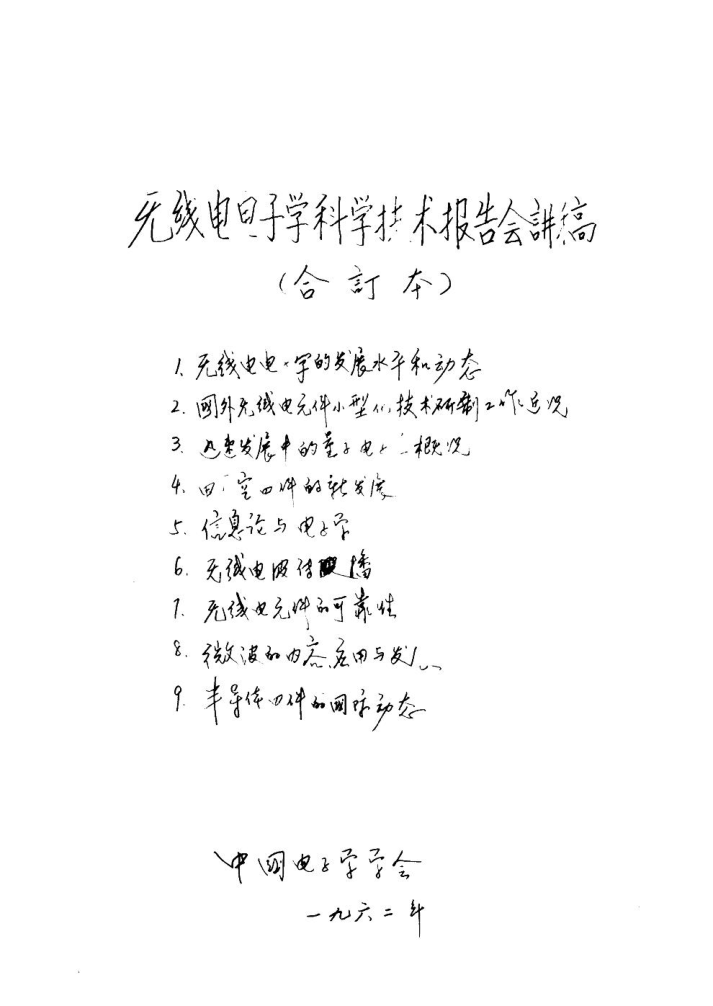 无线电电子学科学技术报告会講稿
（合訂本）
1. 无线电电子学的发展水平和动态
2. 國外无线电元件小型化技术研制工作近况
3. 迅速发展中的量子电子 概况
4. 空 件的新发展
5. 信息论与电子学
6. 无线电波传播
7. 无线电元件的可靠性
8. 微波的内容应用与发
9. 半导体 件的國际动态
中國电子学学会
一九六二年